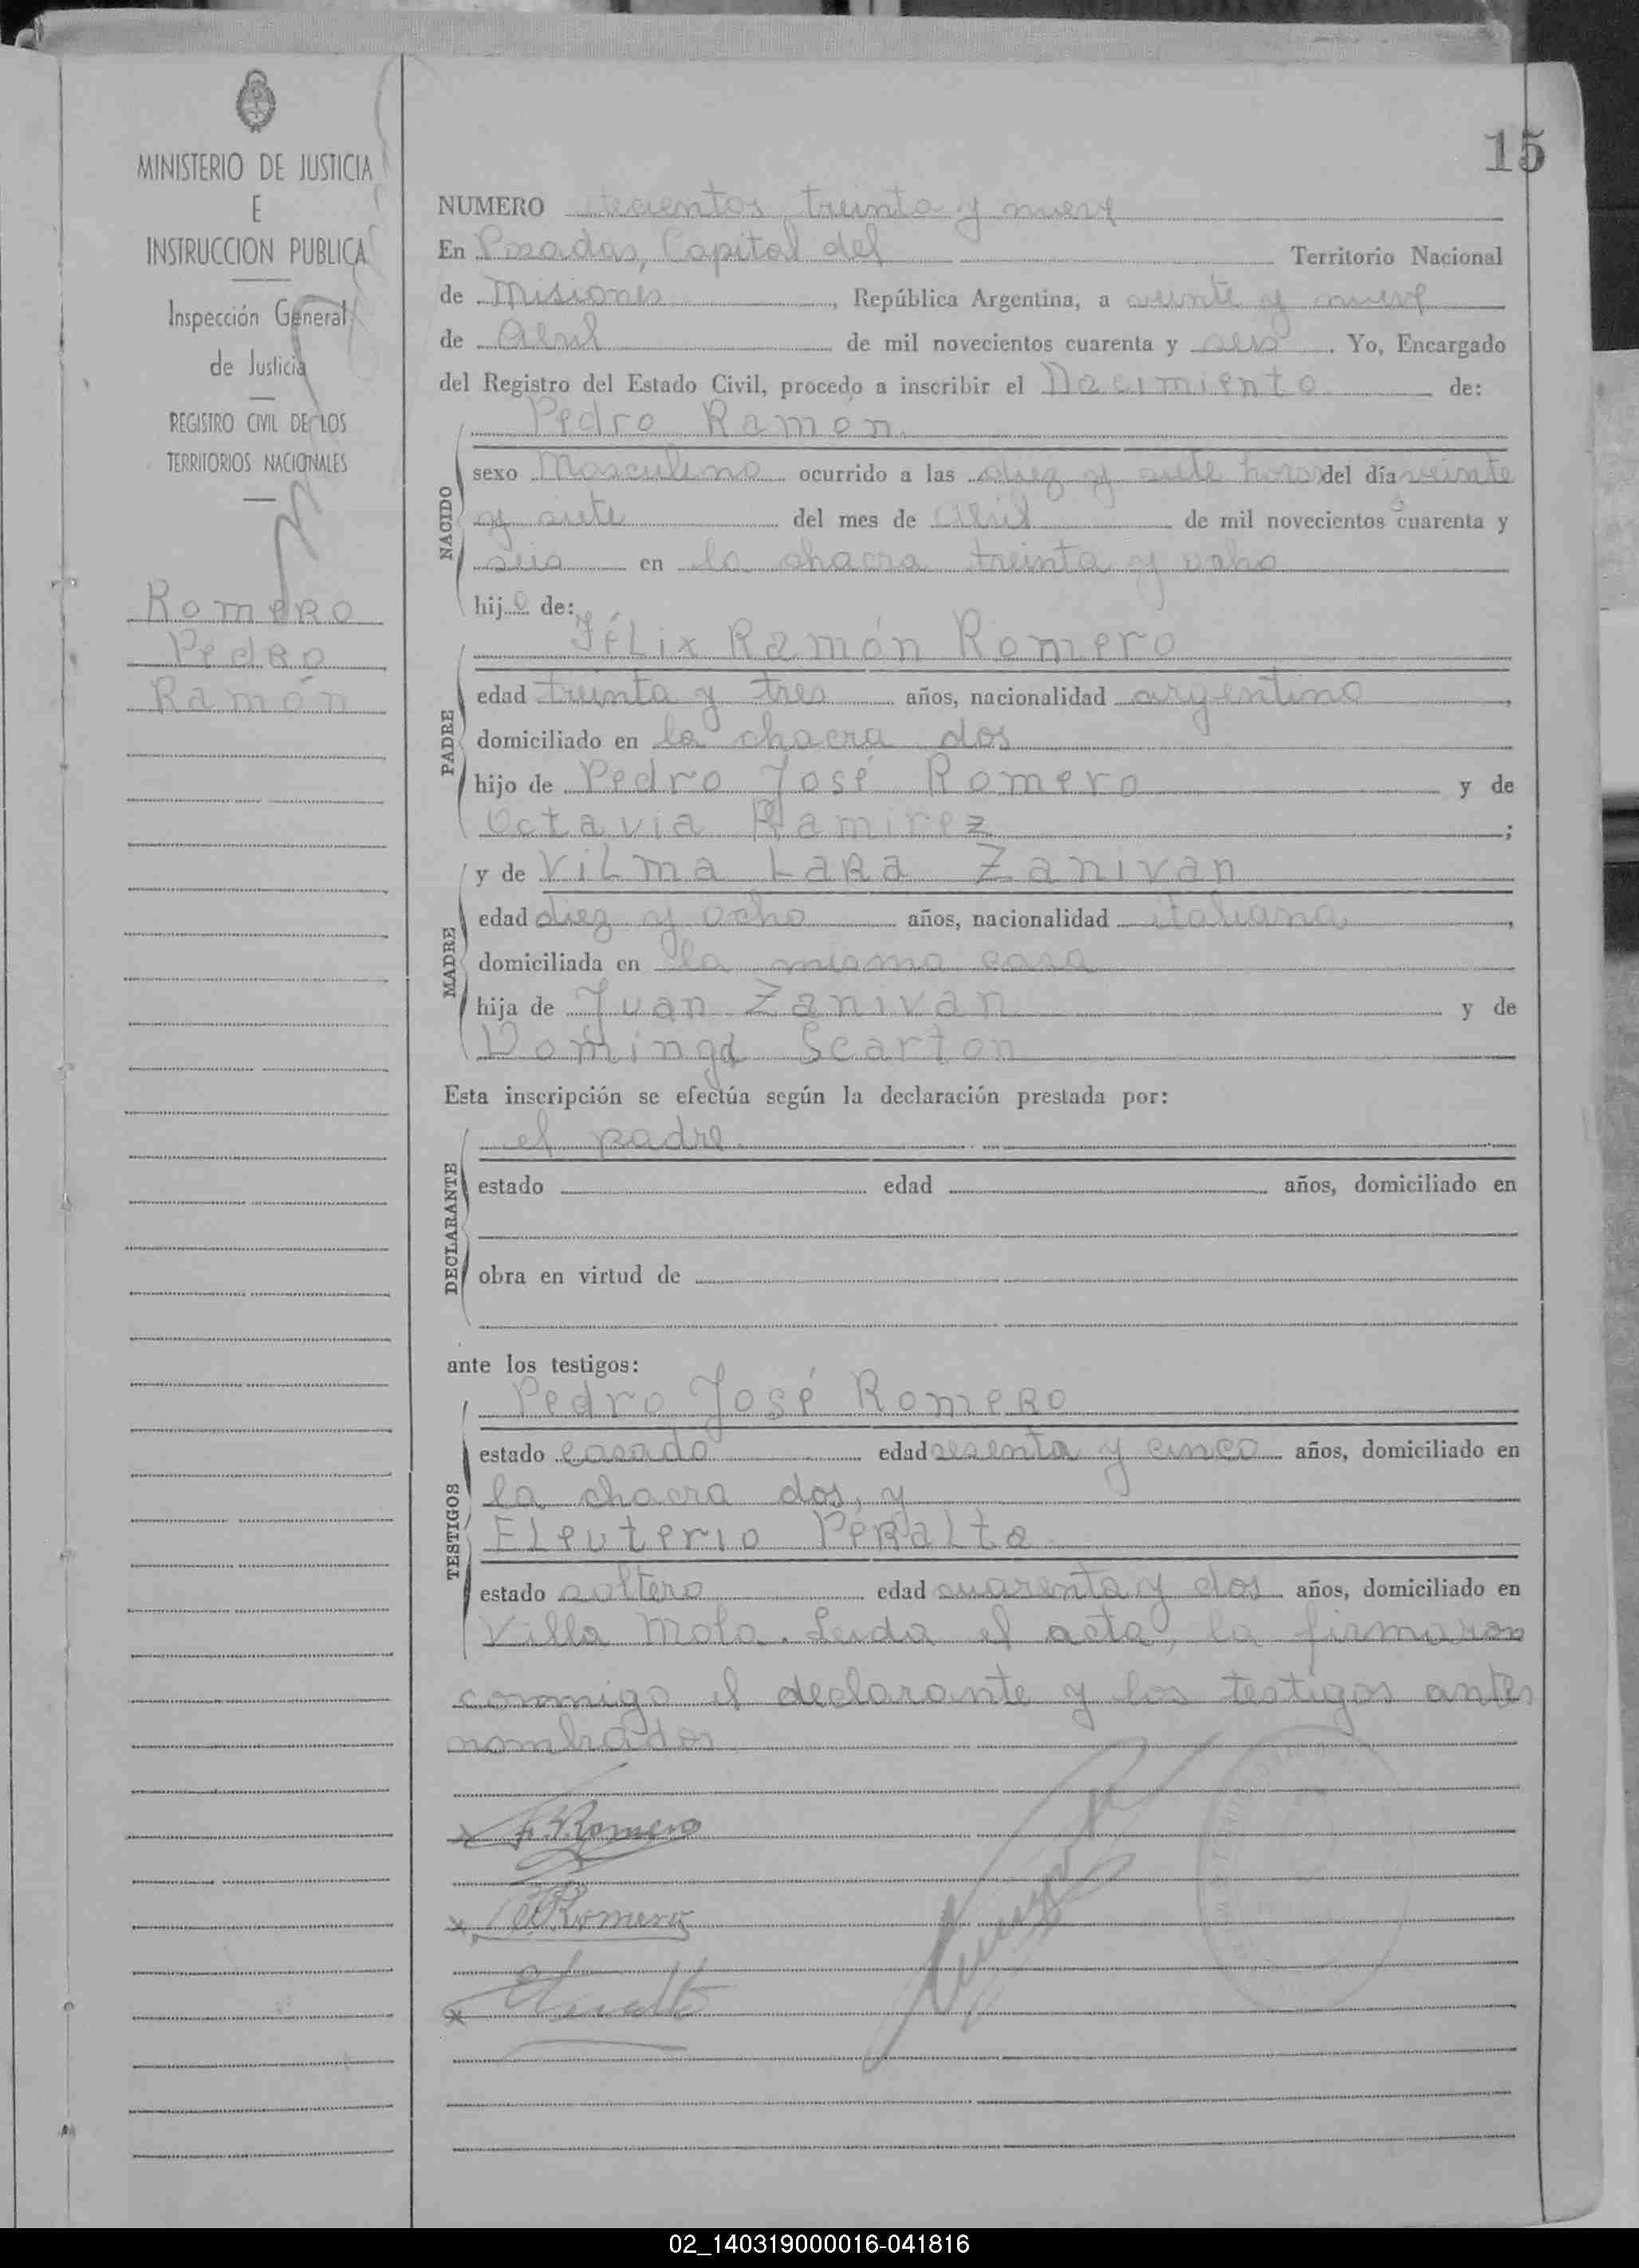 15
MINISTERIO DE JUSTICIA
E
INSTRUCCION PUBLICA
Inspección General
de Justicia
REGISTRO CIVIL DE LOS
TERRITORIOS NACIONALES
Romero
Pedro
Ramón
NUMERO treinta y nueve
En Posadas, Capital del Territorio Nacional
de Misiones, República Argentina, a veinte y nueve
de Abril de mil novecientos cuarenta y seis. Yo, Encargado
del Registro del Estado Civil, procedo a inscribir el Nacimiento de:
NACIDO
Pedro Ramón.
sexo Masculino ocurrido a las diez y siete horas del día veinte
y siete del mes de abril de mil novecientos cuarenta y
seis en la chacra treinta y ocho
hijo de:
PADRE
Félix Ramón Romero
edad treinta y tres años, nacionalidad argentino,
domiciliado en la chacra dos
hijo de Pedro José Romero y de
Octavia Ramirez;
MADRE
y de Vilma Lara Zanivan
edad diez y ocho años, nacionalidad italiana,
domiciliada en la misma casa
hija de Juan Zanivan y de
Dominga Scarton
Esta inscripción se efectúa según la declaración prestada por:
DECLARANTE
el padre.
estado edad años, domiciliado en
obra en virtud de
ante los testigos:
TESTIGOS
Pedro José Romero
estado casado edad sesenta y cinco años, domiciliado en
la chacra dos, y
Eleuterio Peralta.
estado soltero edad cuarenta y dos años, domiciliado en
Villa Mola. Leida el acta, la firmaron
conmigo el declarante y los testigos antes
nombrados
x F. R. Romero
x Romero
x
02_140319000016-041816